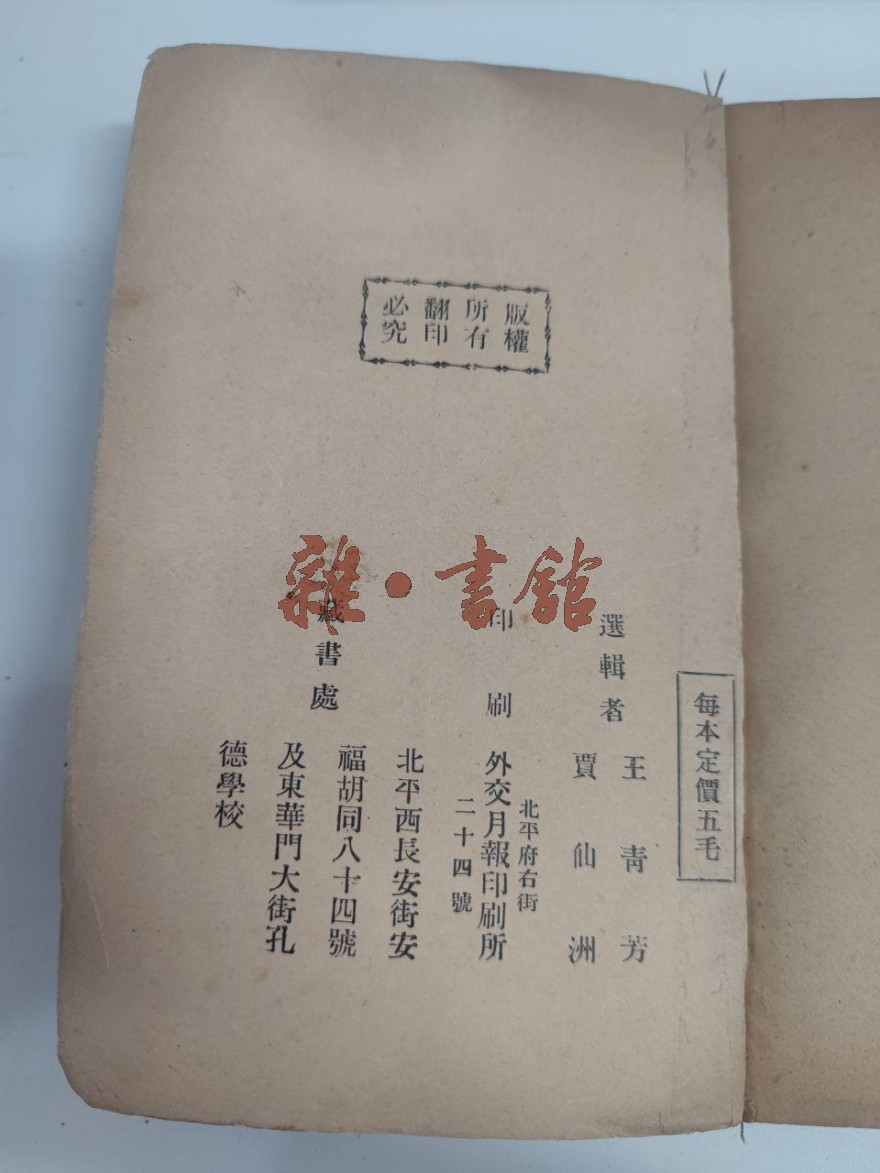 版權
所有
翻印
必究
每本定價五毛
選輯者
王青芳
賈仙洲
印刷
北平府右街
外交月報印刷所
二十四號
藏書處
北平西長安街安
福胡同八十四號
及東華門大街孔
德學校
雜·書館